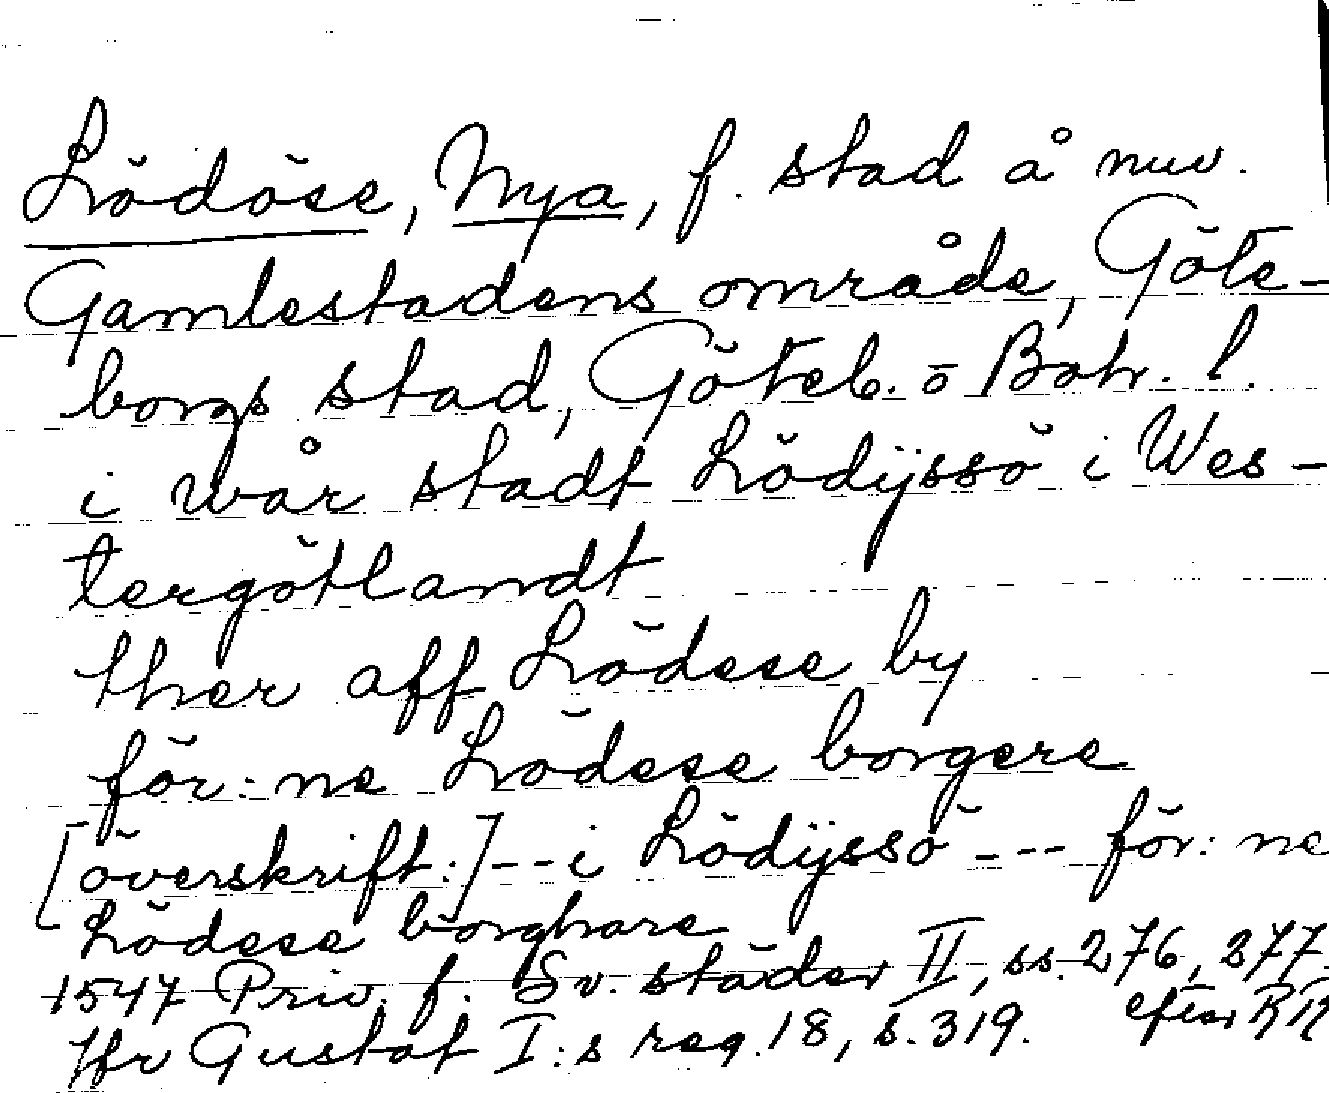 Lödöse, Nya, f. stad å nuv.
Gamlestadens område, Göte-
borgs stad, Göteb. o Boh. l.
i wår stadt Lödijssö i Wes-
tergötlandt
ther aff Lödese by
för:ne Lödese borgere
[överskrift:]--i Lödijssö --- för:ne
Lödese borghare
1547 Priv. f. Sv. städer II, ss. 276, 277
efter RR
Jfr Gustaf I:s reg. 18, s. 319.